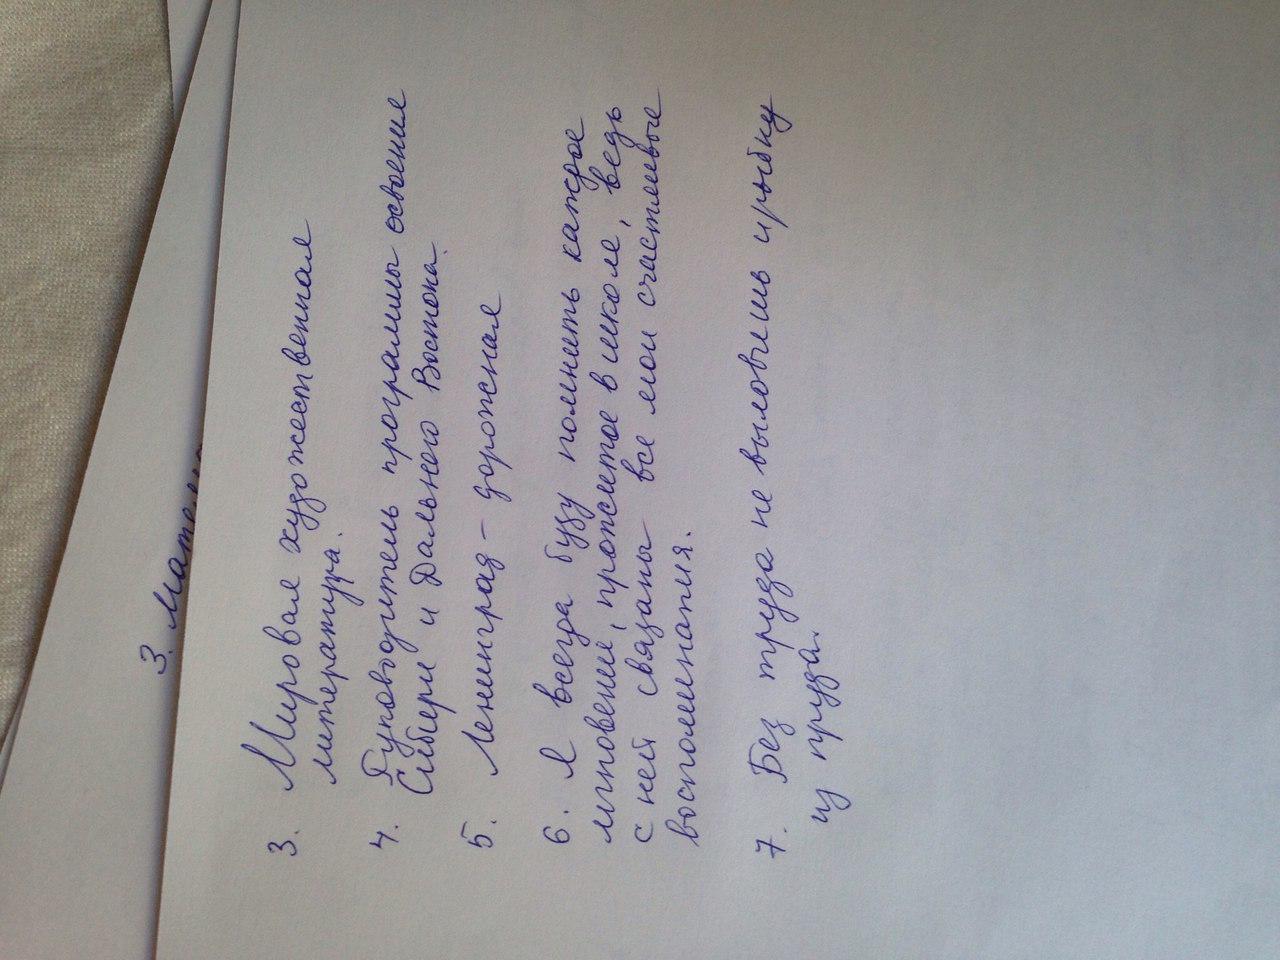 3. Мировая художественная
литература.
4. Руководитель программы освоения
Сибири и Дальнего Востока.
5. Ленинград – дорожная
6. Я всегда буду помнить каждое
мгновение, прожитое в школе, ведь
с ней связаны все мои счастливые
воспоминания.
7. Без труда не выловишь и рыбку
из пруда.
3. Мате